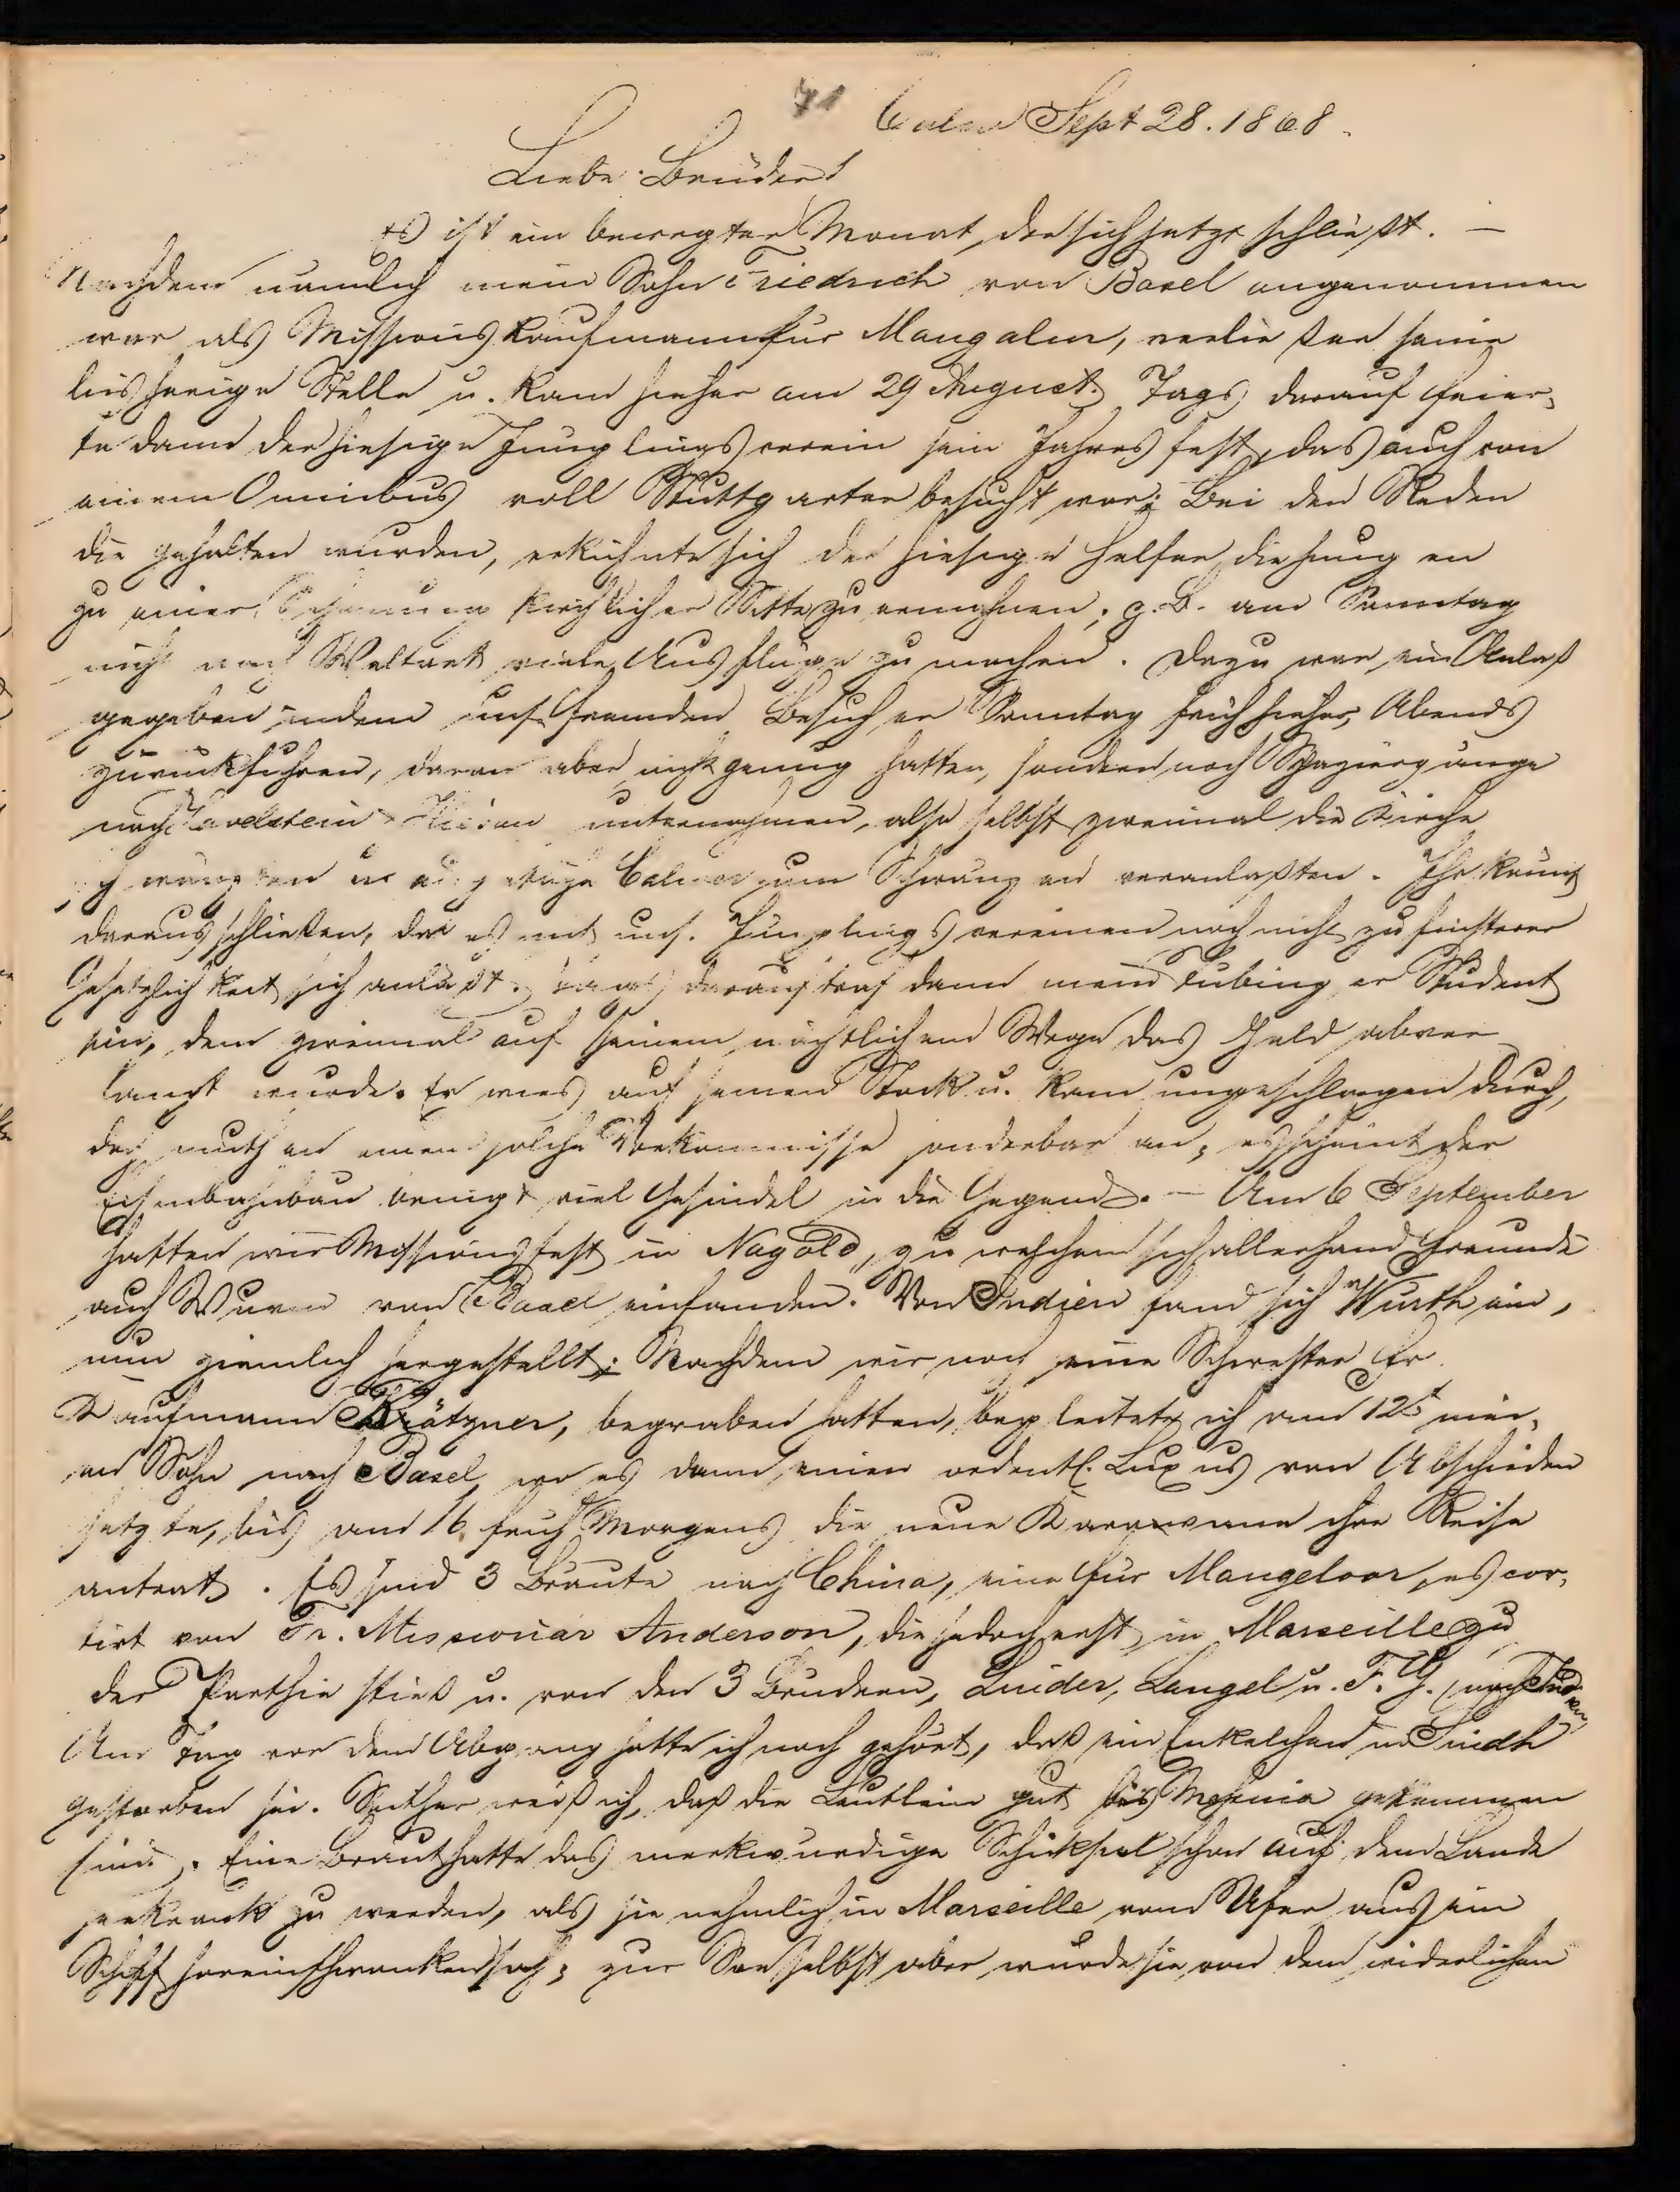 71 Calw Sept 28. 1868.
Liebe Brüder!
Es ist ein bewegter Monat, der sich jetzt schließt. —
Nachdem nämlich mein Sohn Friedrich von Basel angenommen
war als Missions Kaufmann für Mangalur, verließ er seine
bisherige Stelle u. kam hieher am 29 August. Tags darauf feier-
te dann der hiesige Jünglingsverein sein Jahresfest, das auch von
einem Omnibus voll Stuttgarter besucht war; Bei den Reden
die gehalten wurden, erkühnte sich der hiesige Helfer die jungen
zu einer Schonung kirchlicher Sitte zu ermahnen; z.B. am Sonntag
nicht nach Weltart viele Ausflüge zu machen. Dazu war ein Anlaß
gegeben indem uns. fremden Besucher Sonntag früh hieher, Abends
zurückfuhren, daran aber nicht genug hatten, sondern noch Spaziergänge
nach Zavelstein Hirsau unternahmen, also selbst zweimal die Kirche
schwänzten u. auch einige Calwer zum Schwänzen veranlaßten. Ihr könnt
daraus schließen, daß es mit uns. Jünglingsvereinen noch nicht zu finsterer
Gesetzlichkeit sich anläßt. Tags darauf traf dann mein Tübinger Student
ein, dem zweimal auf seinem nächtlichen Wege das Geld abver-
langt wurde. Er wies auf seinen Stock u. kam ungeschlagen durch,
doch muthen einen solche Vorkommnisse sonderbar an, es scheint der
Eisenbahnbau bringt viel Gesindel in die Gegend. — Am 6 September
hatten wir Missionsfest in Nagold, zu welchem sich allerhand Freunde
auch Wurm von Basel einfanden. Von Indien fand sich Würth ein,
nun ziemlich hergestellt; Nachdem wir noch eine Schwester Fr.
Kaufmann Krätzner, begraben hatten, begleitete ich am 12t mei-
nen Sohn nach Basel, wo es dann einen ordentl. Luxus von Abschieden
setzte, bis am 16 früh Morgens die neue Karawane ihre Reise
antrat. Es sind 3 Bräute nach China, eine für Mangaloor, escor-
tirt von Fr. Missionar Anderson, die jedoch erst in Marseille zu
der Parthie stieß u. von den 3 Brüdern, Linder, Laugel u. F. G. (nach Indien)
Am Tag vor dem Abgang hatte ich noch gehört, daß ein Enkelchen in Sindh
gestorben sei. Seither weiß ich, daß die Leutlein gut bis Messina gekommen
sind. Eine Braut hatte das merkwürdige Schicksal schon auf dem Lande
seekrank zu werden, als sie nehmlich in Marseille vom Ufer aus ein
Schiff hereinschwanken sah; zur See selbst aber wurde sie von dem widerlichen